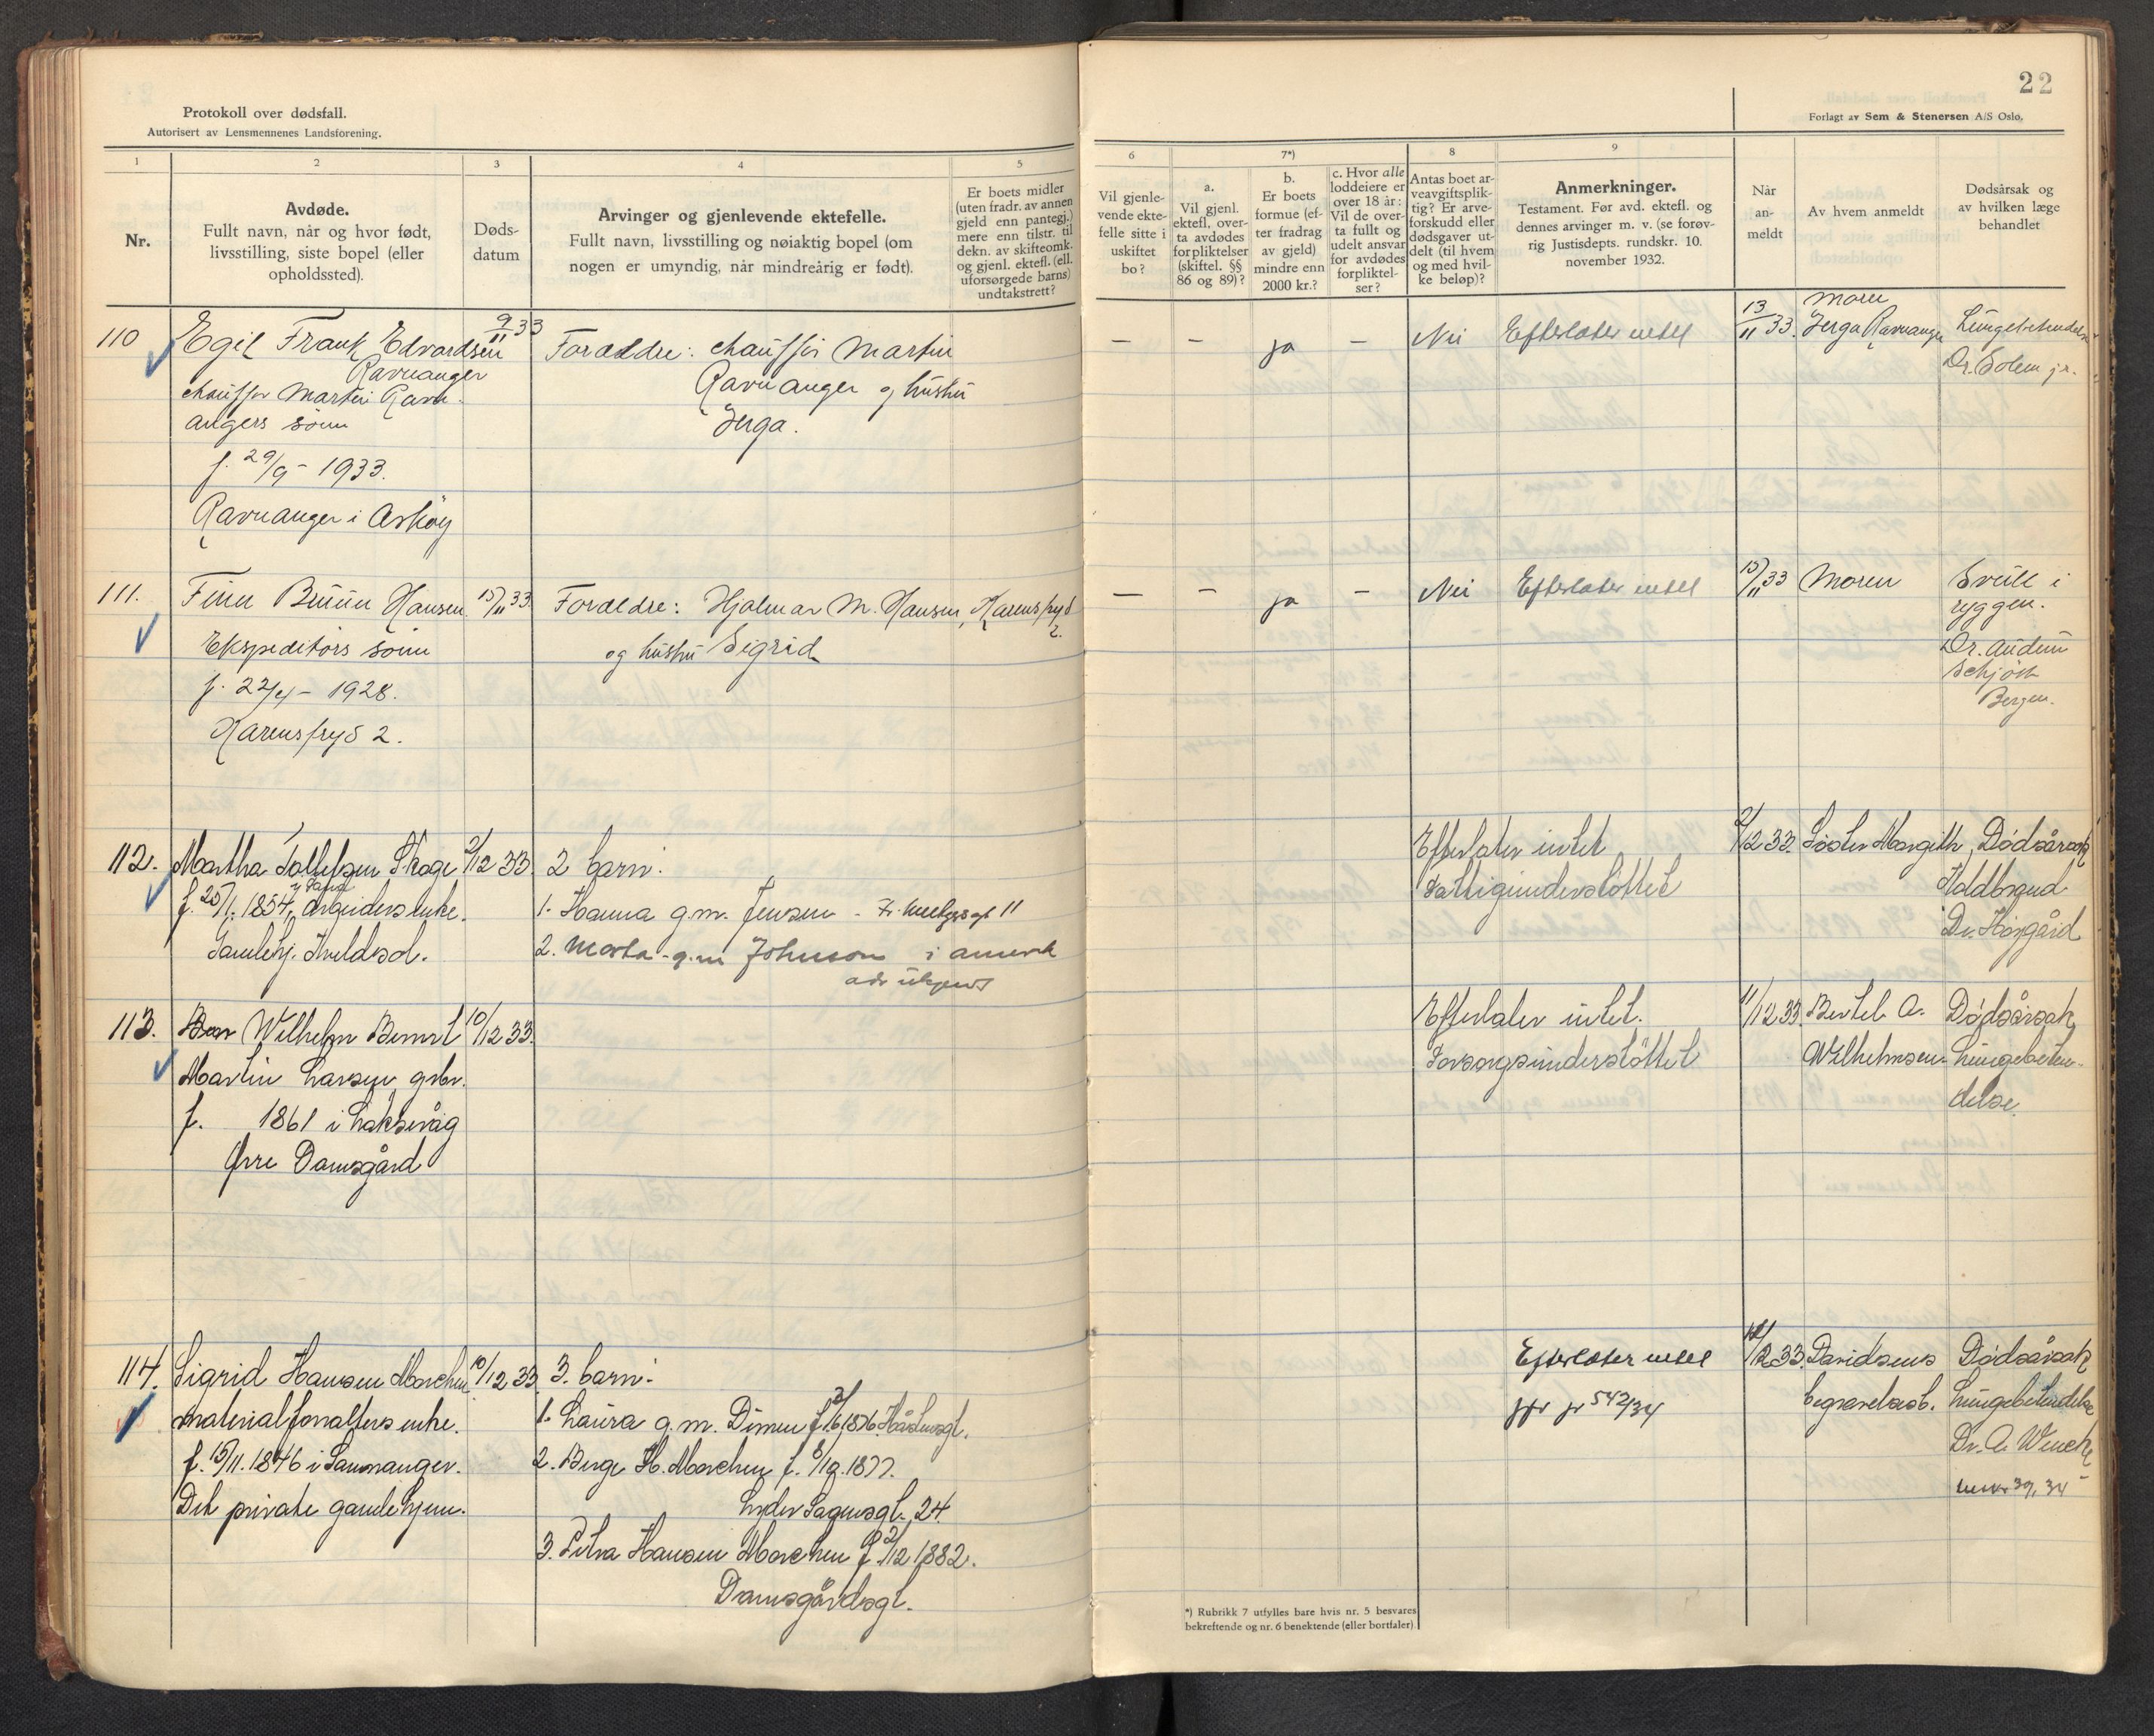 Protokoll over dødsfall.
Autorisert av Lensmennenes Landsforening.
1
2
3
4
5
Nr.
Avdøde.
Fullt navn, når og hvor født,
livsstilling, siste bopel (eller
opholdssted).
Døds-
datum
Arvinger og gjenlevende ektefelle.
Fullt navn, livsstilling og nøiaktig bopel (om
nogen er umyndig, når mindreårig er født).
Er boets midler
(uten fradr. av annen
gjeld enn pantegj.)
mere enn tilstr. til
dekn. av skifteomk.
og gjenl. ektefl. (ell.
uforsørgede barns)
undtakstrett?
110
Egil Frank Edvardsen
Ravnanger
chauffør Martin Ravn-
angers sønn
f. 29/9 - 1933.
Ravnanger i Askøy
9/11 33
Foreldre: chauffør Martin
Ravnanger og hustru
Jerga.
111.
Finn Bruun Hansen
Ekspeditørs sønn
f. 22/4 - 1928.
Karensfryd 2.
15/11 33.
Foreldre: Hjalmar M. Hansen, Karensfryd
2.
og hustru Sigrid
112.
Martha Tollefsen Skage
f. 25/1. 1854, arbeiders enke.
Gamlehj. Kveldsol.
2/12 33
2 barn:
1. Hanna g.m. Jensen -
2. Marta - g.m Johnson i amerik
adr ukjent
113.
Wilhelm Bernt
Martin Larsen, grbr.
f. 1861 i Laksevåg
Øvre Damsgård
10/12 33.
114.
Sigrid Hansen Morchen
materialforvalters enke.
f. 15/11. 1846 i Samnanger.
Det private gamlehjem.
10/12 33
3. barn:
1. Laura g.m. Dimen f. 2/6 1876.
2. Berge H. Morchen f. 8/10. 1877.
Lyder Sagensgt. 24.
3. Petra Hansen Morchen f 2/12 1882.
Damsgårdsgt.
22
Forlagt av Sem & Stenersen A/S Oslo.
6
7*)
8
9
Vil gjenle-
vende ekte-
felle sitte i
uskiftet
bo?
a.
Vil gjenl.
ektefl. over-
ta avdødes
forpliktelser
(skiftel. §§
86 og 89)?
b.
Er boets
formue (ef-
ter fradrag
av gjeld)
mindre enn
2000 kr.?
c. Hvor alle
loddeiere er
over 18 år:
Vil de over-
ta fullt og
udelt ansvar
for avdødes
forpliktel-
ser?
Antas boet ar-
veavgiftsplik-
tig? Er arve-
forskudd eller
dødsgaver ut-
delt (til hvem
og med hvil-
ke beløp)?
Anmerkninger.
Testament. Før avd. ektefl. og
dennes arvinger m. v. (se forøv-
rig Justisdepts. rundskr. 10.
november 1932.
Når
an-
meldt
Av hvem anmeldt
Dødsårsak og
av hvilken læge
behandlet
— — ja — Nei Efterlater intet
13/11 33.
Moren
Jerga Ravnanger
Lungebetendelse
Dr. Solem jr.
— — ja — Nei Efterlater intet
15/11 33
Moren
Svull i
ryggen.
Dr. Audun
Schjøth
Bergen.
Efterlater intet
Fattigunderstöttet
2/12 33.
Søster Margith
Dødsårsak
Koldbrand
Dr. Horgård
Efterlater intet.
Forsorgsunderstöttet
11/12 33.
Bertel A.
Wilhelmsen.
Dødsårsak
Lungebeten-
delse.
Efterlater intet
jfr jr 542/34
12/12 33.
Davidsens
begravelsesb.
Dødsårsak
Lungebetendelse
Dr. A. Wencke
*) Rubrikk 7 utfylles bare hvis nr. 5 besvares
bekreftende og nr. 6 benektende (eller bortfaler).